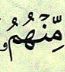 مِّنْهُمُ ۥ